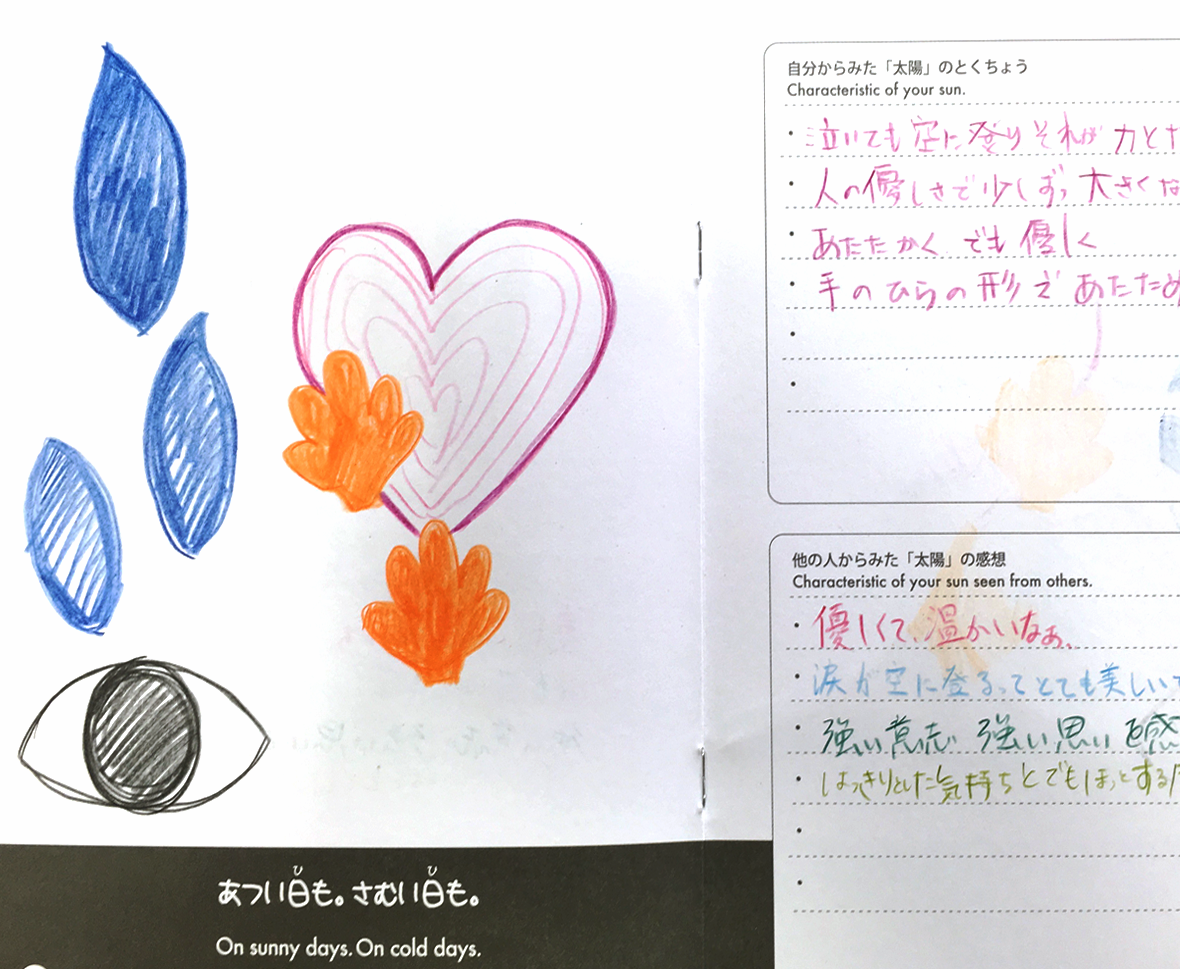 自分からみた「太陽」のとくちょう
Characteristic of your sun.
・泣いても空に登りそれが力とな
・人の優しさで少しずつ大きくな
・あたたかく でも優しく
・手のひらの形であたため
他の人からみた「太陽」の感想
Characteristic of your sun seen from others.
・優しくて、温かいなぁ、
・涙が空に登るってとても美しいで
・強い意志 強い思い を感
・はっきりとした気持ちとでもほっとする
あつい日も。さむい日も。
On sunny days. On cold days.